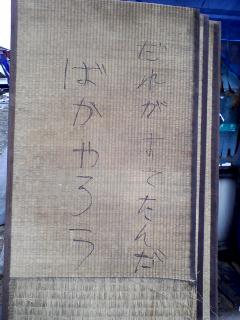 だれがすてたんだ
ばかやろう